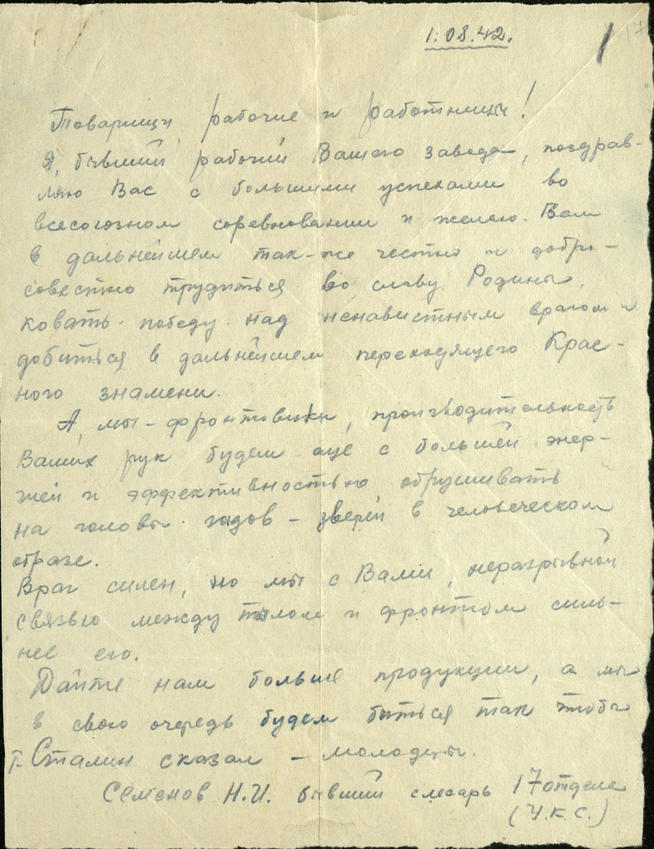 1.08.42.
1 17
Товарищи рабочие и работницы!
Я, бывший рабочий Вашего завода, поздрав-
ляю Вас с большими успехами во
всесоюзном соревновании и желаю Вам
в дальнейшем так-же честно и добро-
совестно трудиться во славу Родины,
ковать победу над ненавистным врагом и
добиться в дальнейшем переходящего Крас-
ного знамени.
А, мы - фронтовики, производительность
Ваших рук будем еще с большей энер-
гией и эффективностью обрушивать
на головы гадов - зверей в человеческом
образе.
Враг силен, но мы с Вами, неразрывной
связью между тылом и фронтом силь-
нее его.
Дайте нам больше продукции, а мы
в свою очередь будем биться так чтобы
т. Сталин сказал - молодцы.
Семенов Н.И. бывший слесарь 17 отдела
(У.К.С.)